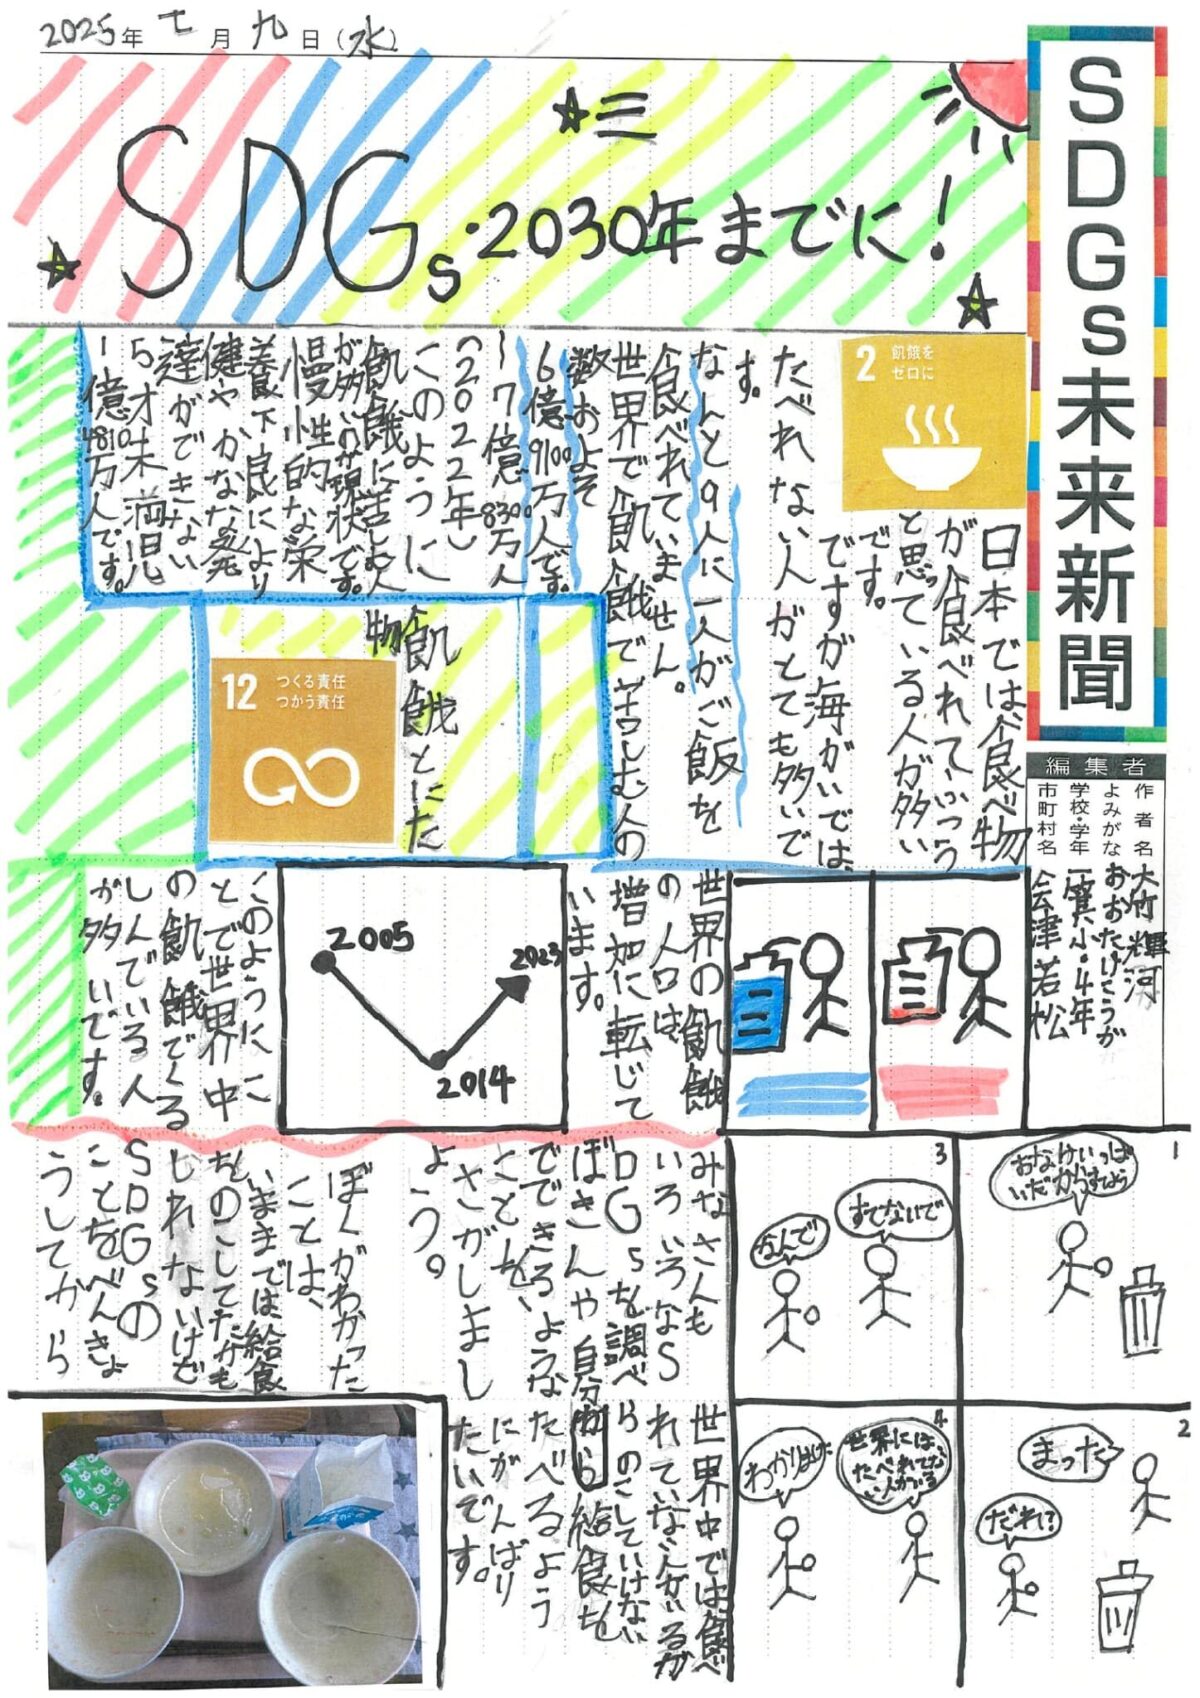 2025年七月九日(水)
SDGs未来新聞
SDGs・2030年までに!
編集者
作者名 大竹輝河
よみがな おおたけこうが
学校・学年 一箕小。4年
市町村名 会津若松
2 飢餓を
ゼロに
日本では食べ物
が食べれていつう
と思っている人が多い
です。
ですが海がいでは、
たべれない人がとても多いで
す。
なんと9人に一人がご飯を
食べれていません。
世界で飢餓で苦しむ人の
数おおよそ
6億9100万人です。
〜7億8300万人
(2022年)
このように
飢餓に苦しむ人
が多いのが現状です。
慢性的な栄
養不良により
健やかな発
達ができない
5才未満児
1億4810万人です。
12 つくる責任
つかう責任
飢餓とにた
物
世界の飢餓
の人口は
増加に転じて
います。
2005
2014
2023
このようにこ
とで世界中
の飢餓でくる
しんでいる人
が多いです。
みなさんも
いろいろなS
DGsを調べ
ぼきんや自分
でできるような
ことを、
さがしまし
ょう。
ぼくがわかった
ことは、
いままでは、給食
をのこしてたかも
しれないけど
SDGsの
ことをべんきょ
うしてから
世界中では、食べ
れていない人がいるか
らのこしていけない
から給食を
たべるよう
にがんばり
たいです。
1
おなけいっぱ
いだからすてよう
2
まった
だれ?
3
すてないで
なんで
4
世界には、
たべれてな
い人がいる
わかりました